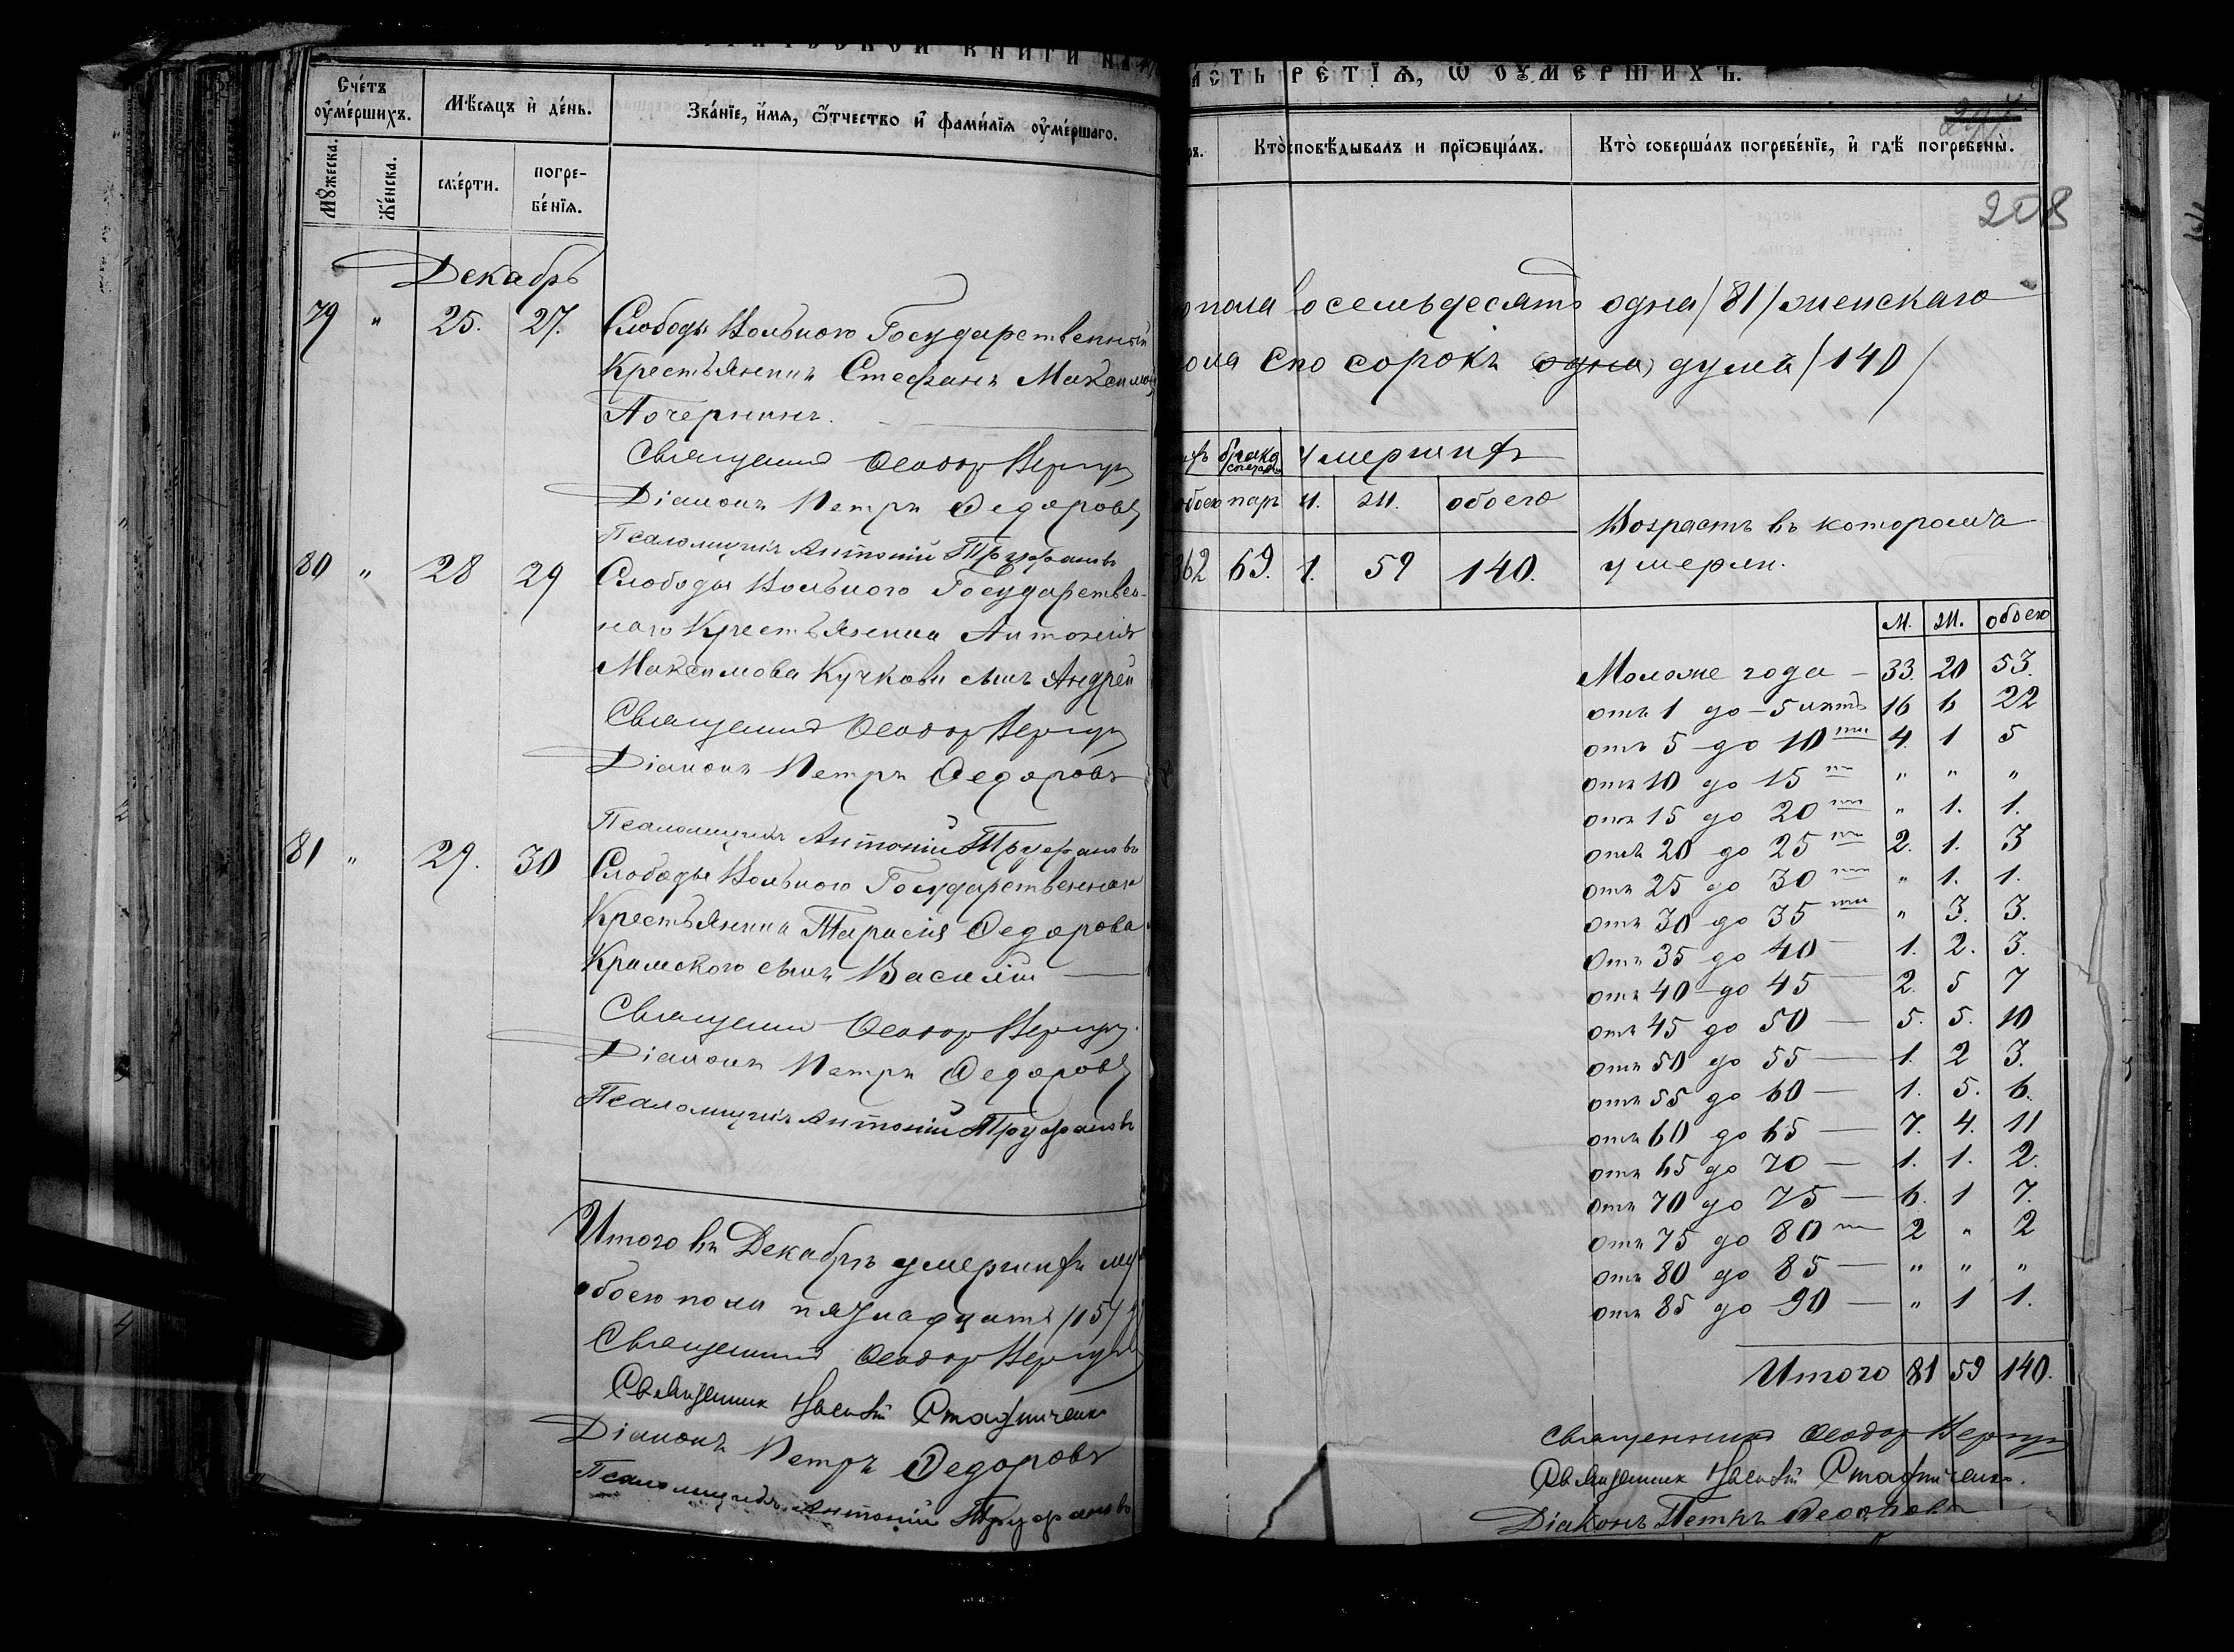 КНИГИ НА
Сче́тъ ѹ҆ме́ршихъ.
Мѣ́сяцъ и҆ де́нь.
Зва́нїе, и҆́мѧ, ѻ҆́тчество и҆ фами́лїѧ ѹ҆ме́ршагѡ.
Мꙋ́жеска.
Же́нска.
сме́рти.
погре-
бе́нїѧ.
Декабрь
79 " 25. 27. Слободы Вольного Государственный
Крестьянинъ Стефанъ Максимовъ
Почернинъ.
Священникъ Ѳеодор Вергун
Діаконъ Петръ Ѳедоровъ
Псаломщикъ Антоній Труфановъ
80 " 28 29 Слободы Вольного Государствен-
наго Крестьянина Антонія
Максимова Кучкова сынъ Андрей
Священникъ Ѳеодор Вергун
Діаконъ Петръ Ѳедоровъ
Псаломщикъ Антоній Труфановъ
81 " 29. 30 Слободы Вольного Государственнаго
Крестьянина Тарасія Ѳедорова
Крамского сынъ Василій
Священникъ Ѳеодор Вергун
Діаконъ Петръ Ѳедоровъ
Псаломщикъ Антоній Труфановъ
Итого въ Декабрѣ умершихъ му
обоего пола пятнадцать /15/
Священникъ Ѳеодор Вергун
Священник
Діаконъ Петръ Ѳедоровъ
Псаломщикъ Антоній Труфановъ
А́СТЬ РЕ́ТЇѦ, Ѡ҆ ОУ҆МЕ́РШИХЪ.
Кто̀ споⷡ҇ѣдывалъ и прїѡбща́лъ.
Кто̀ соверша́лъ погребе́нїе, и҆ гдѣ̀ погребены̀.
208
пола восемьдесятъ одна /81/ женскаго
пола сто сорокъ душъ /140/
брака умершихъ
обоего паръ М. Ж. обоего
362 69. 1. 59 140.
Возрастъ въ которомъ
умерли.
М. Ж. обоего
Моложе года — 33. 20 53.
отъ 1 до 5 лѣтъ 16 6 22
отъ 5 до 10 4. 1 5
отъ 10 до 15 " " "
отъ 15 до 20 " 1. 1.
отъ 20 до 25 2. 1. 3
отъ 25 до 30 " 1. 1.
отъ 30 до 35 " 3. 3.
Отъ 35 до 40 — 1. 2. 3.
отъ 40 до 45 — 2. 5 7
отъ 45 до 50 — 5. 5. 10
отъ 50 до 55 — 1. 2 3.
отъ 55 до 60 — 1. 5. 6.
отъ 60 до 65 — 7. 4. 11
отъ 65 до 70 — 1. 1. 2.
отъ 70 до 75 — 6. 1 7.
отъ 75 до 80 — 2 " 2
отъ 80 до 85 — " " "
отъ 85 до 90 — " 1 1.
Итого 81 59 140.
Священникъ Ѳеодор Вергун
Священник
Діаконъ Петръ Ѳедоровъ